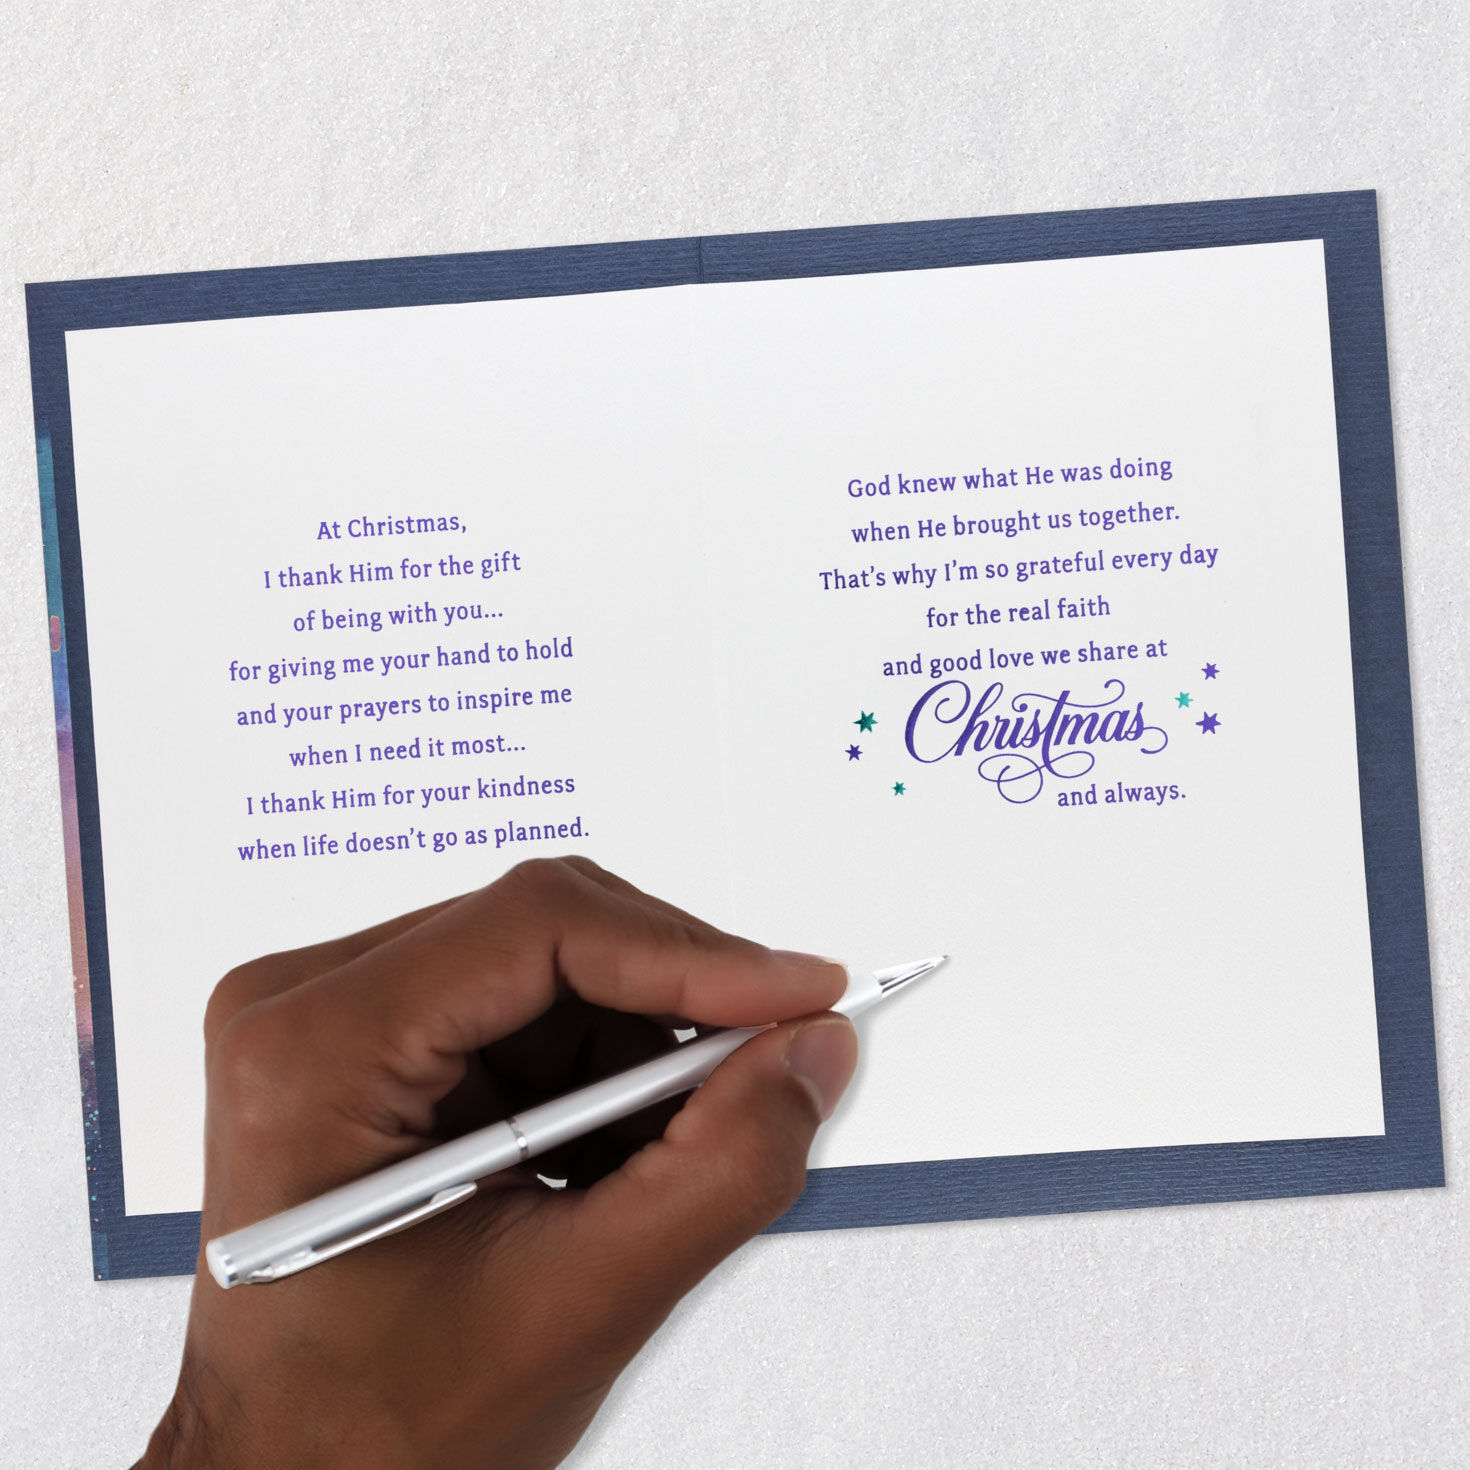 At Christmas,
I thank Him for the gift
of being with you...
for giving me your hand to hold
and your prayers to inspire me
when I need it most...
I thank Him for your kindness
when life doesn't go as planned.
God knew what He was doing
when He brought us together.
That's why I'm so grateful every day
for the real faith
and good love we share at
Christmas
and always.